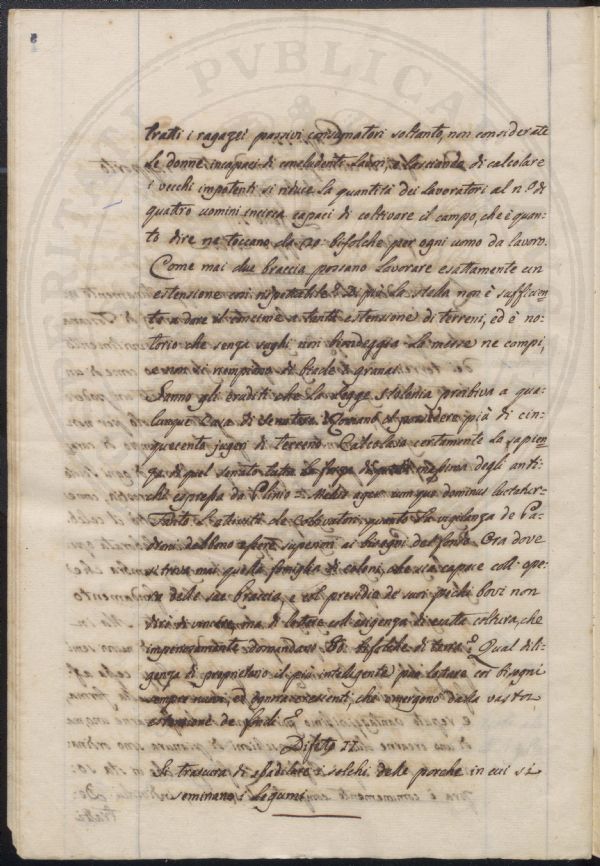 tratti i ragazzi passivi consumatori soltanto, non considerate
le donne incapaci di concludenti lavori, e lasciando di calcolare
i vecchi impotenti si riduce la quantità dei lavoratori al n.º di
quattro uomini incirca capaci di coltivare il campo, che è quan-
to dire ne toccano da 20. bifolche per ogni uomo da lavoro.
Come mai due braccia possano lavorare esattamente un
estensione così rispettabile? Di più la stalla non è sufficien-
te a dare il concime a tanta estensione di terreni, ed è no-
torio che senza sughi non biondeggia la messe ne campi,
e non si riempiono di biade i granai.
Sanno gli eruditi che la legge Stolonia proibiva a qua-
lunque Casa di Senatore Romano il possedere più di cin-
quecento jugeri di terreno. Calcolava certamente la sapien-
za di quel senato tutta la forza di quella massima degli anti-
chi espressa da Plinio = Melior ager cumque dominus luctatur=
Tanto l'attività de coltivatori, quanto la vigilanza de Pa-
droni debbono essere superiori ai bisogni del fondo. Ora dove
si trova mai quella famiglia di coloni, che sia capace coll'ope-
ra delle sue braccia, e col presidio de suoi pochi bovi non
dirò di vincere, ma di lottare coll'esigenza di esatta coltura, che
imperiosamente domandano 80. bifolche di terra? Qual dili-
genza di proprietario il più intelligente può lottare coi bisogni
sempre nuovi, ed ognora crescenti, che emergono dalla vasta
estensione de fondi?
Difetto II.
Si trascura di sbadilare i solchi delle porche in cui si
seminano i legumi.